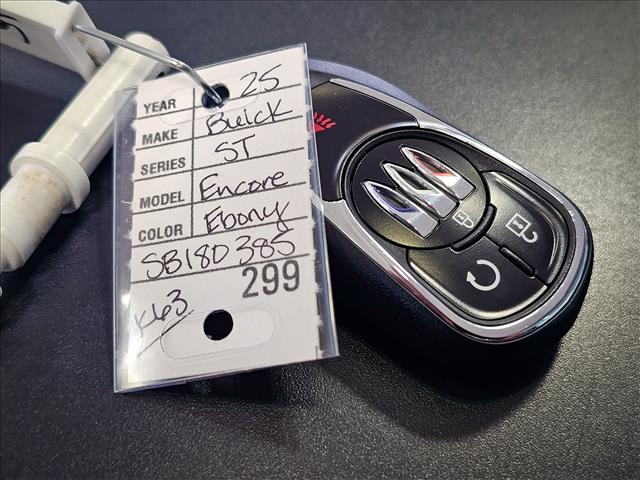 YEAR 25
MAKE Buick
SERIES ST
MODEL Encore
COLOR Ebony
SB180385
299
K63